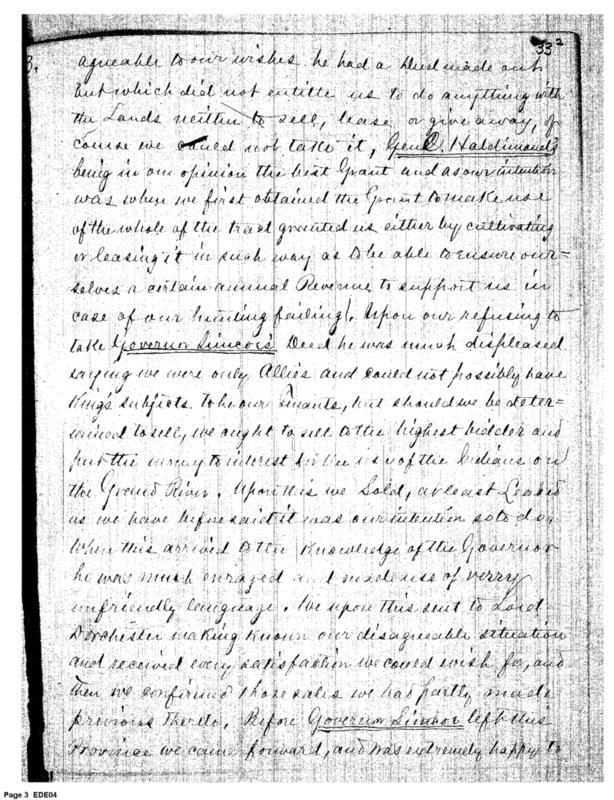 33 2
3.
agreable to our wishes he had a Deed made out
but which did not entitle us to do anything with
the Lands neither to sell, lease or give away, of
course we could not take it, Genl. Haldimand's
being in our opinion the best Grant and as our intention
was when we first obtained the Grant to make use
of the whole of the tract granted us either by cultivating
or leasing it in such way as to be able to ensure our=
selves a certain annual Revenue to support us in
case of our hunting failing. Upon our refusing to
take Governor Simcoe's Deed he was much displeased
saying we were only Allies and could not possibly have
King's subjects to be our Tenants, but should we be deter=
mined to sell, we ought to sell to the highest bidder and
put the money to interest for the use of the Indians on
the Grand River. Upon this we Sold, at least Leased
as we have before said it was our intention so to do,
When this arrived to the Knowledge of the Governor
he was much enraged and made use of verry
unfriendly language. We upon this sent to Lord
Dorchester making known our disagreeable situation
and received every satisfaction we could wish for, and
then we confirmed those sales we had partly made
previous thereto. Before Governor Simcoe left this
Province we came forward, and was extremely happy to
Page 3 EDE04